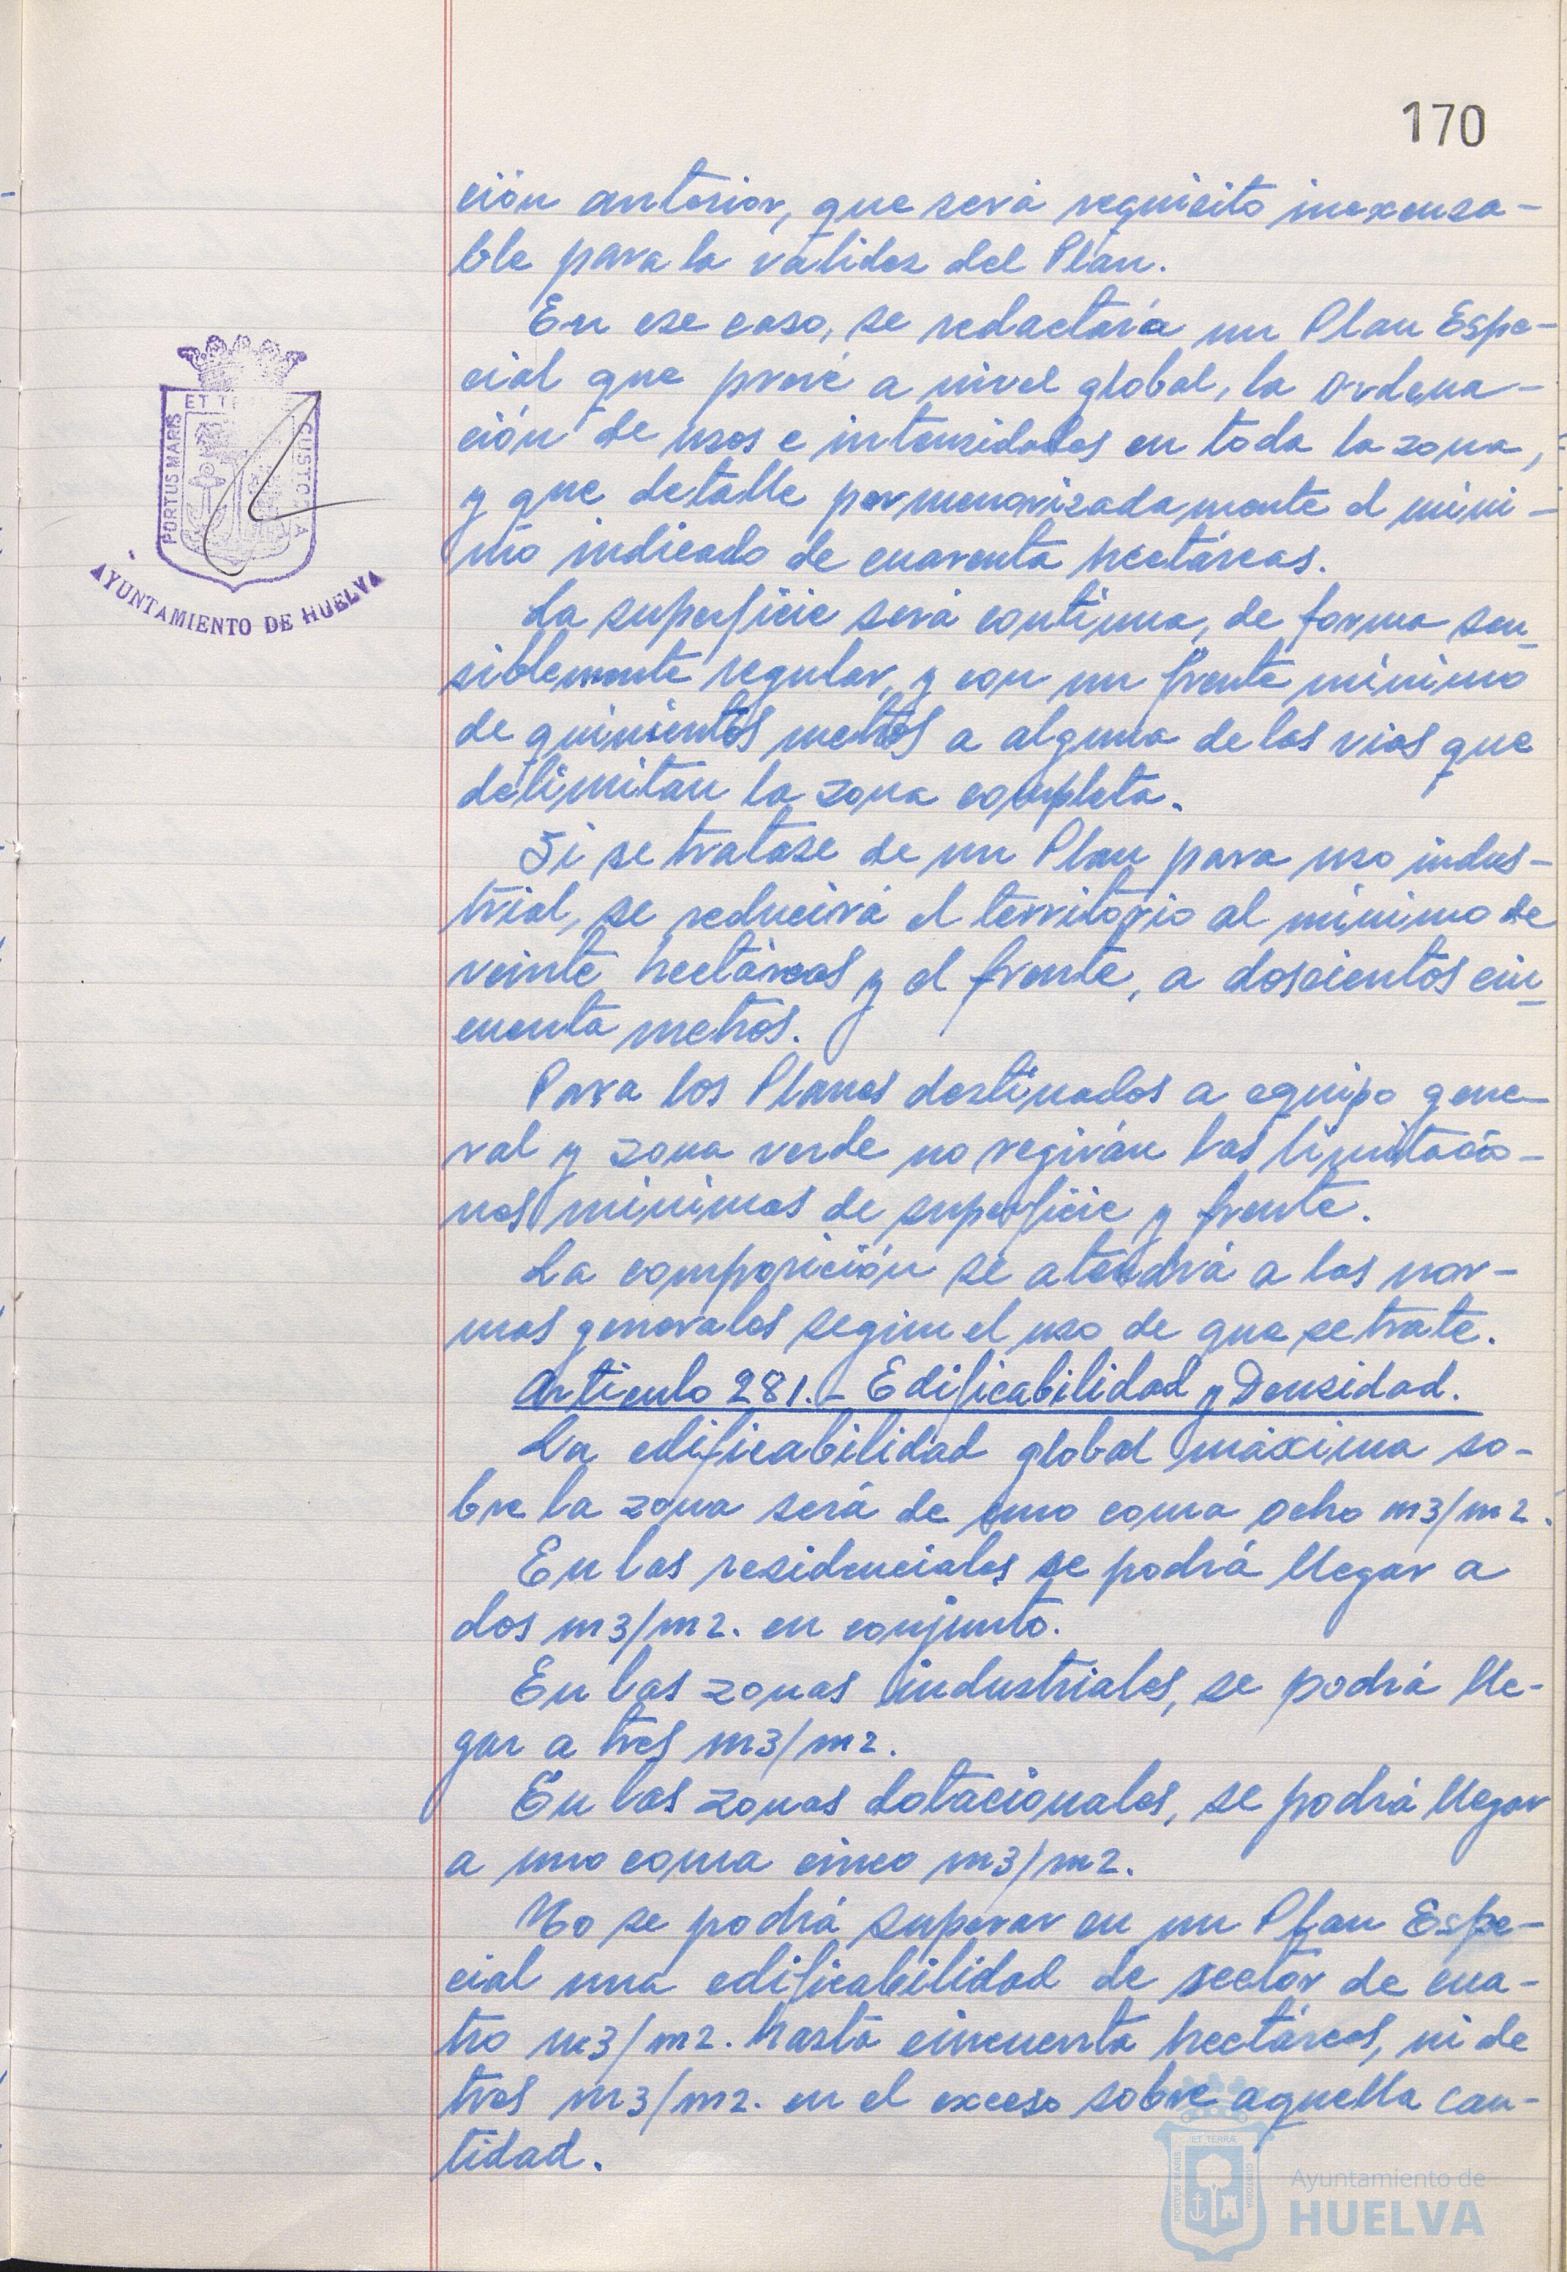 170
ción anterior, que será requisito inexcusa-
ble para la validez del Plan.
En ese caso, se redactará un Plan Espe-
cial que prevé a nivel global, la ordena-
ción de usos e intensidades en toda la zona,
y que detalle pormenorizadamente el míni-
mo indicado de cuarenta hectáreas.
La superficie será continua, de forma sen
siblemente regular, y con un frente mínimo
de quinientos metros a alguna de las vias que
delimitan la zona completa.
Si se tratase de un Plan para uso indus-
trial, se reducirá el territorio al mínimo de
veinte hectáreas y el frente, a doscientos cin
cuenta metros.
Para los Planes destinados a equipo gene-
ral y zona verde no regirán las limitacio-
nes mínimas de superficie y frente.
La composición se atendrá a las nor-
mas generales segun el uso de que se trate.
Articulo 281.- Edificabilidad y Densidad.
La edificabilidad global máxima so-
bre la zona será de uno coma ocho m3/m2.
En las residenciales se podrá llegar a
dos m3/m2. en conjunto.
En las zonas industriales, se podrá lle-
gar a tres m3/m2.
En las zonas dotacionales, se podrá llegar
a uno coma cinco m3/m2.
No se podrá superar en un Plan Espe-
cial una edificabilidad de sector de cua-
tro m3/m2. hasta cincuenta hectáreas, ni de
tres m3/m2. en el exceso sobre aquella can-
tidad.
PORTUS MARIS
ET
CUSTODIA
AYUNTAMIENTO DE HUELVA
PORTUS MARIS
ET TERRAE
CUSTODIA
Ayuntamiento de
HUELVA